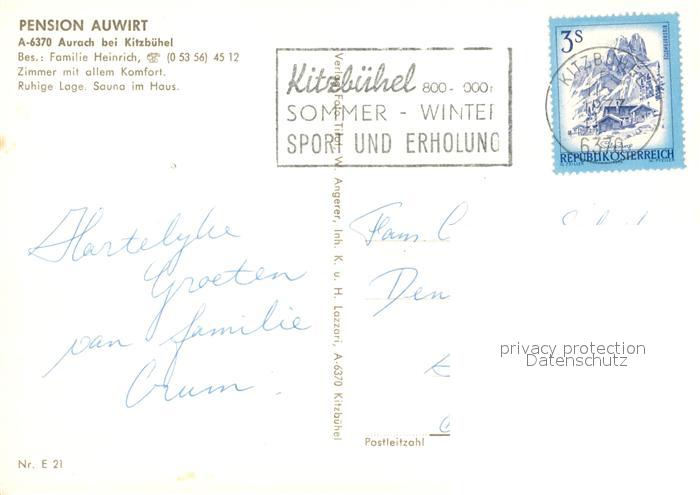 PENSION AUWIRT
A-6370 Aurach bei Kitzbühel
Bes.: Familie Heinrich, ☎ (0 53 56) 45 12
Zimmer mit allem Komfort.
Ruhige Lage. Sauna im Haus.
Kitzbühel 800-
SOMMER - WINTE
SPORT UND ERHOLUNG
3 S
KITZBÜHEL
6370
REPUBLIK ÖSTERREICH
Verlag Foto Tirol W. Angerer, Inh. K. u. H. Lazzari, A-6370 Kitzbühel
Hartelyke
Groeten
van familie
Crum.
Fam. C
Den
privacy protection
Datenschutz
Postleitzahl
Nr. E 21